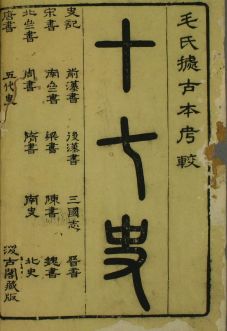 毛氏據古本考較
十七史
史記 前漢書 後漢書 三國志 晉書
宋書 南齊書 梁書 陳書 魏書
北齊書 周書 隋書 南史 北史
唐書 五代史 汲古閣藏版